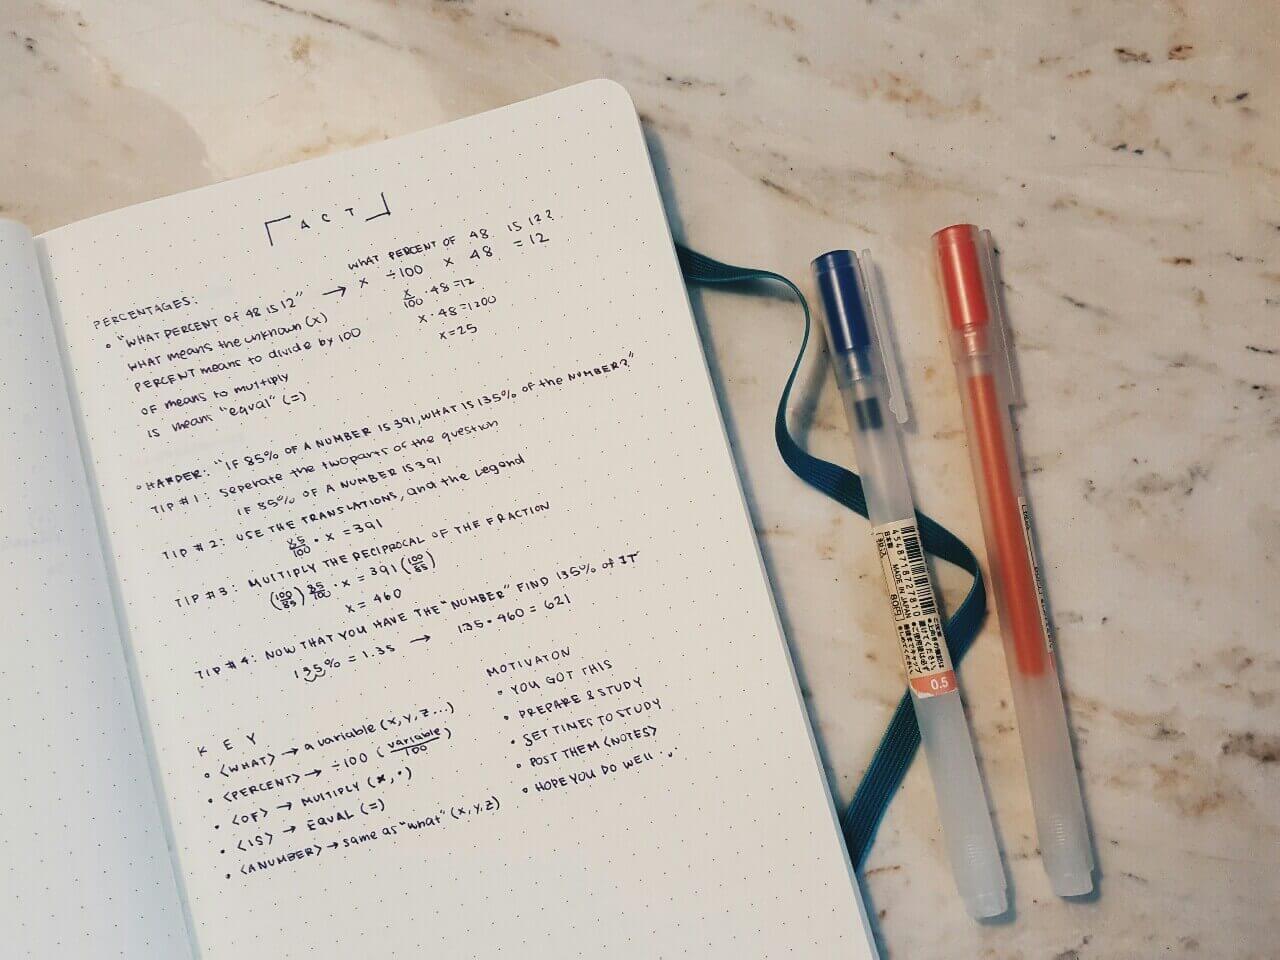 A C T
PERCENTAGES:
• "WHAT PERCENT OF 48 IS 12" →
WHAT means the unknown (x)
PERCENT means to divide by 100
OF means to multiply
IS means "equal" (=)
WHAT PERCENT OF 48 IS 12?
x ÷100 x 48 = 12
x/100 · 48=12
x · 48=1200
x=25
• HARDER: "IF 85% OF A NUMBER IS 391, WHAT IS 135% OF the NUMBER?"
TIP #1: Seperate the two parts of the question
IF 85% OF A NUMBER IS 391
TIP #2: USE THE TRANSLATIONS, and the Legend
85/100 · x = 391
TIP #3: MULTIPLY THE RECIPROCAL OF THE FRACTION
(100/85) 85/100 · x = 391 (100/85)
x = 460
TIP #4: NOW THAT YOU HAVE THE "NUMBER" FIND 135% of IT
135% = 1.35 → 1.35 · 460 = 621
K E Y
• <WHAT> → a variable (x, y, z...)
• <PERCENT> → ÷100 (variable/100)
• <OF> → MULTIPLY (x, ·)
• <IS> → EQUAL (=)
• <A NUMBER> → same as "what" (x, y, z)
MOTIVATON
• YOU GOT THIS
• PREPARE & STUDY
• SET TIMES TO STUDY
• POST THEM <NOTES>
• HOPE YOU DO WELL
4548718727810
MADE IN JAPAN
0.5